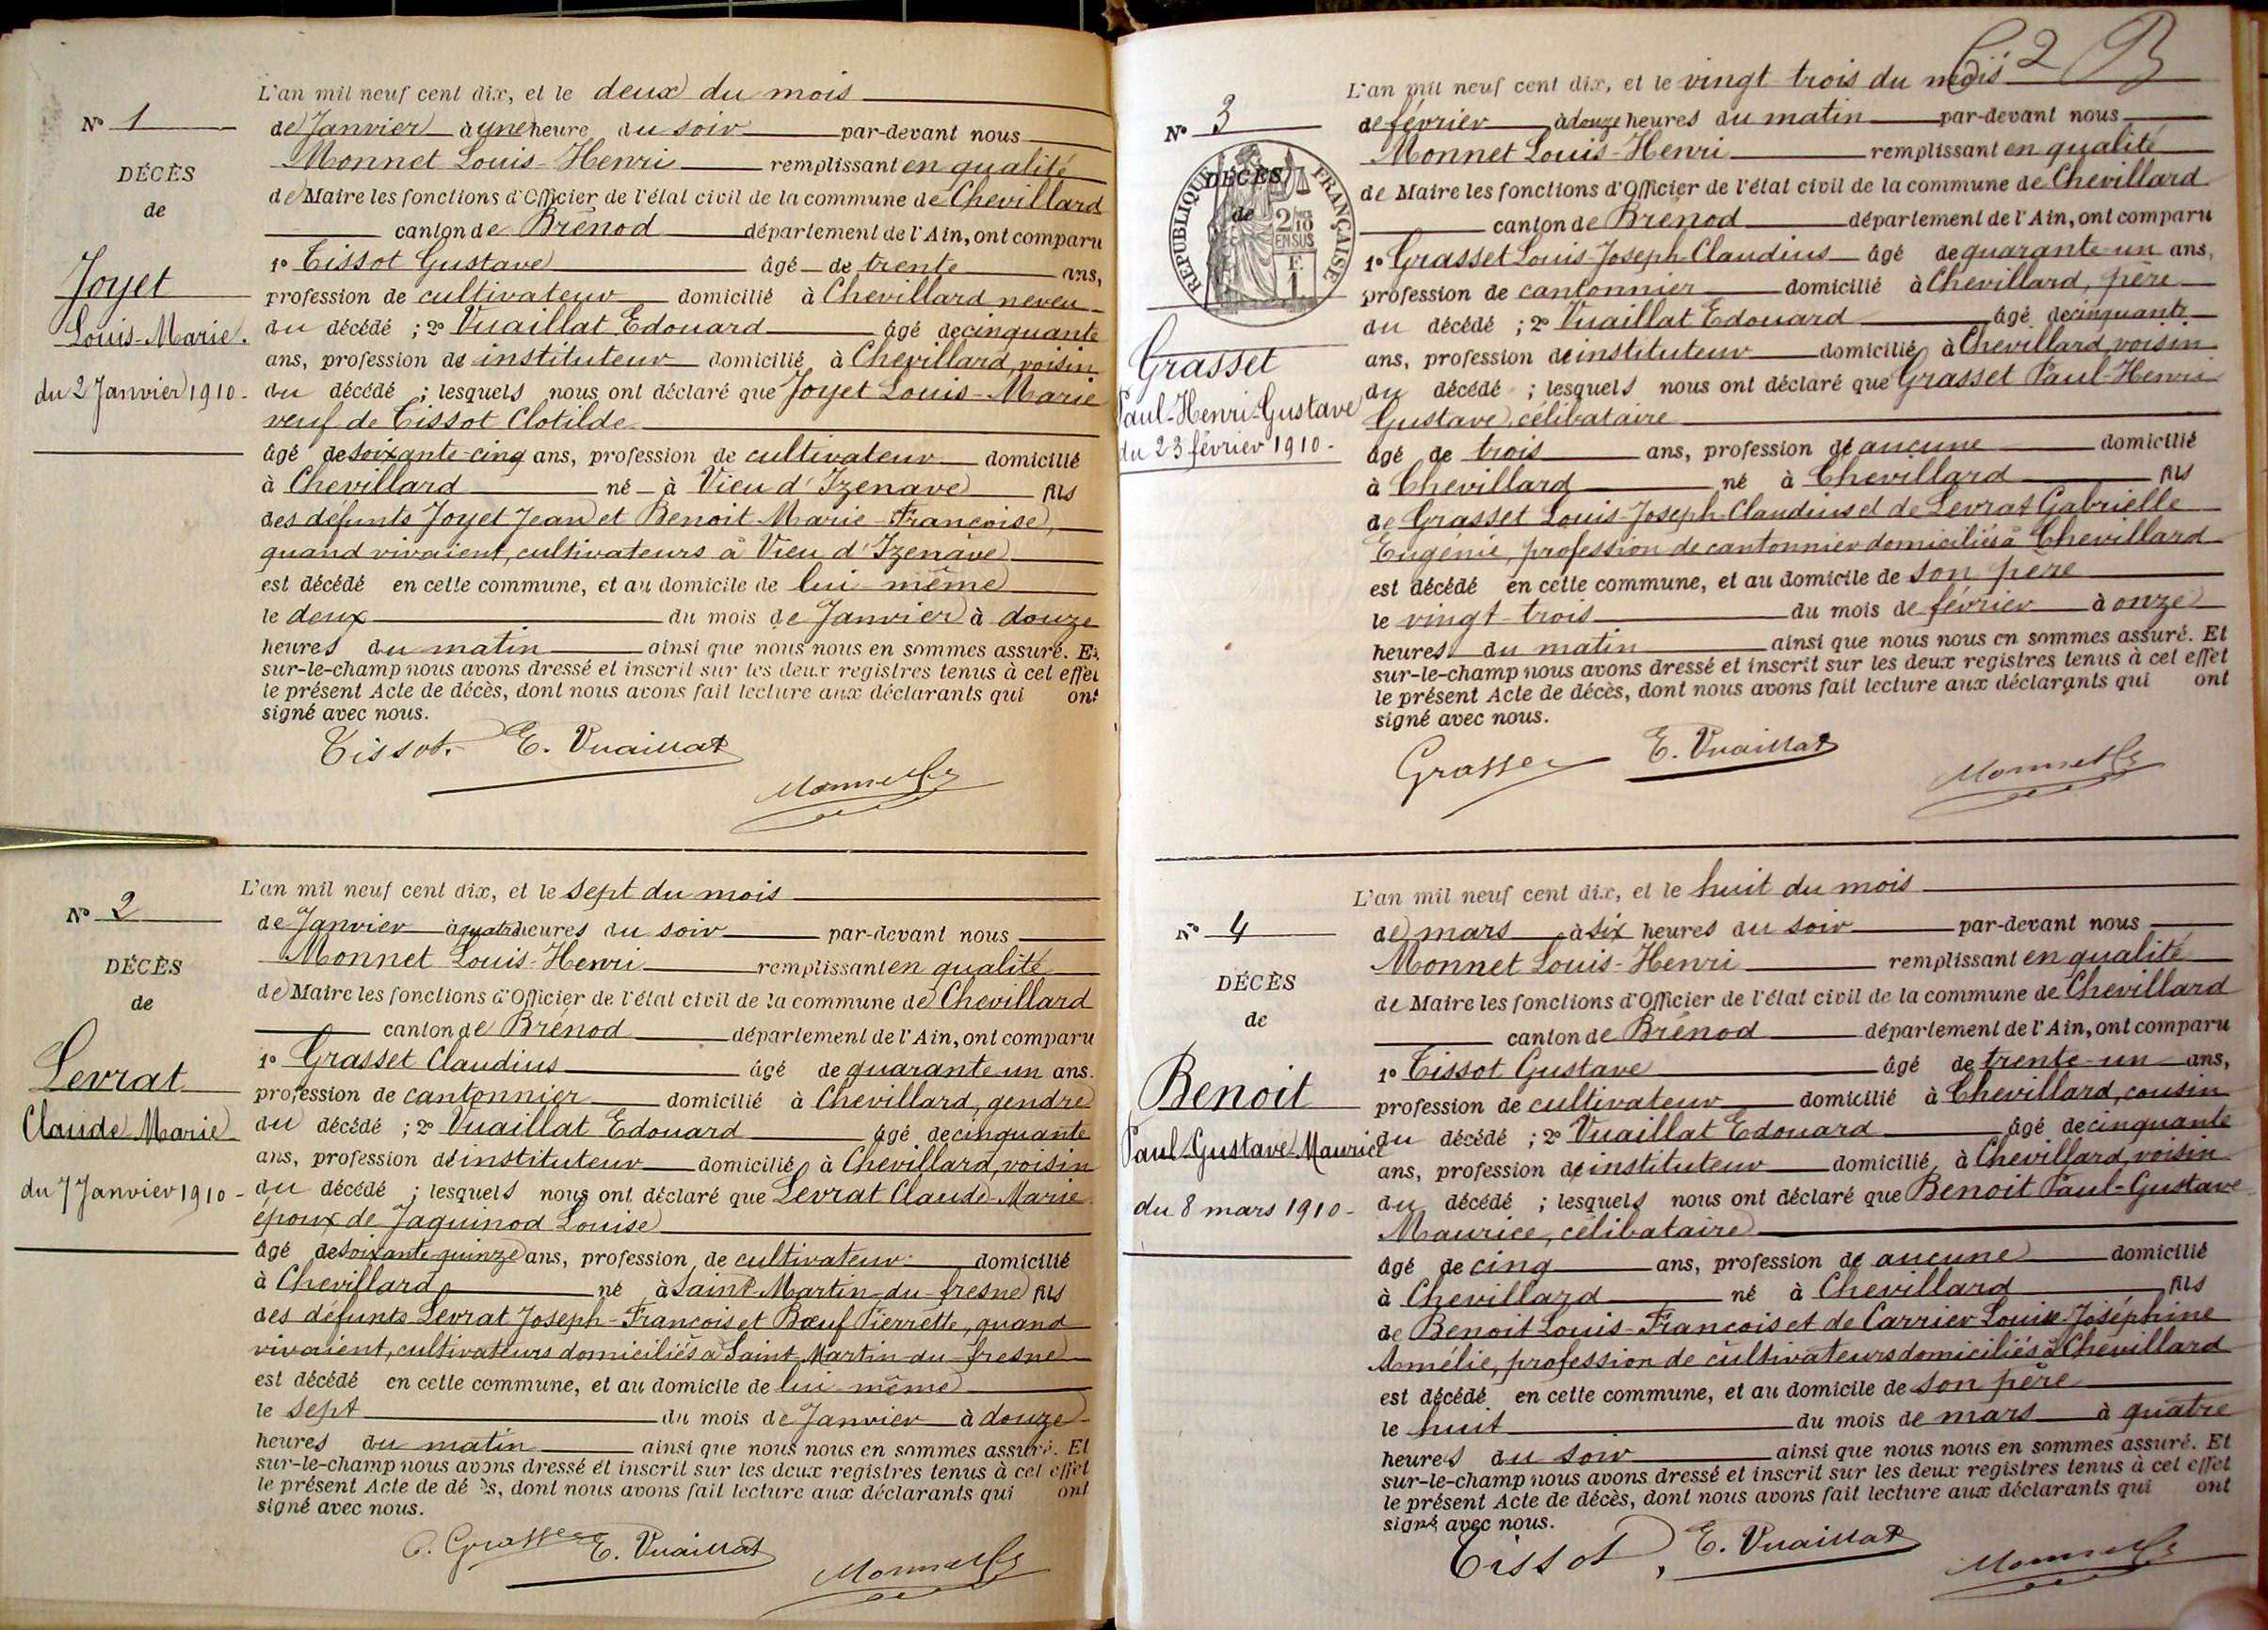 L'an mil neuf cent dix, et le deux du mois
N° 1
de Janvier à une heure du soir par-devant nous
Monnet Louis-Henri remplissant en qualité
DÉCÈS
de
de Maire les fonctions d'Officier de l'état civil de la commune de Chevillard
canton de Brénod département de l'Ain, ont comparu
1° Tissot Gustave âgé de trente ans,
Joyet
profession de cultivateur domicilié à Chevillard neveu
Louis-Marie.
du décédé ; 2° Vuaillat Edouard âgé de cinquante
ans, profession de instituteur domicilié à Chevillard, voisin
du 2 Janvier 1910-
du décédé ; lesquels nous ont déclaré que Joyet Louis-Marie
veuf de Tissot Clotilde
âgé de soixante-cinq ans, profession de cultivateur domicilié
à Chevillard né à Vieu d'Izenave fils
des défunts Joyet Jean et Benoit Marie-Françoise,
quand vivaient, cultivateurs à Vieu d'Izenave
est décédé en cette commune, et au domicile de lui même
le deux du mois de Janvier à douze
heures du matin ainsi que nous nous en sommes assuré. Et
sur-le-champ nous avons dressé et inscrit sur les deux registres tenus à cet effet
le présent Acte de décès, dont nous avons fait lecture aux déclarants qui ont
signé avec nous.
Tissot. E. Vuaillat
Monnet Hri
L'an mil neuf cent dix, et le sept du mois
N° 2
de Janvier à quatre heures du soir par-devant nous
Monnet Louis-Henri remplissant en qualité
DÉCÈS
de
de Maire les fonctions d'Officier de l'état civil de la commune de Chevillard
canton de Brénod département de l'Ain, ont comparu
1° Grasset Claudius âgé de quarante-un ans.
Levrat
profession de cantonnier domicilié à Chevillard, gendre
Claude Marie
du décédé ; 2° Vuaillat Edouard âgé de cinquante
ans, profession de instituteur domicilié à Chevillard, voisin
du 7 Janvier 1910-
du décédé ; lesquels nous ont déclaré que Levrat Claude-Marie
époux de Jaquinod Louise
âgé de soixante-quinze ans, profession de cultivateur domicilié
à Chevillard né à Saint-Martin-du-fresne fils
des défunts Levrat Joseph-François et Bœuf Pierrette, quand
vivaient, cultivateurs domiciliés à Saint-Martin-du-fresne
est décédé en cette commune, et au domicile de lui même
le sept du mois de Janvier à douze
heures du matin ainsi que nous nous en sommes assuré. Et
sur-le-champ nous avons dressé et inscrit sur les deux registres tenus à cet effet
le présent Acte de décès, dont nous avons fait lecture aux déclarants qui ont
signé avec nous.
C. Grasset E. Vuaillat
Monnet Hri
2
L'an mil neuf cent dix, et le vingt trois du mois
N° 3
de février à douze heures du matin par-devant nous
Monnet Louis-Henri remplissant en qualité
DÉCÈS
de
RÉPUBLIQUE FRANÇAISE
2/10 EN SUS
F. 1
de Maire les fonctions d'Officier de l'état civil de la commune de Chevillard
canton de Brénod département de l'Ain, ont comparu
1° Grasset Louis-Joseph-Claudius âgé de quarante-un ans,
profession de cantonnier domicilié à Chevillard, père
du décédé ; 2° Vuaillat Edouard âgé de cinquante
Grasset
ans, profession de instituteur domicilié à Chevillard voisin
Paul-Henri-Gustave
du décédé ; lesquels nous ont déclaré que Grasset Paul-Henri
du 23 février 1910-
Gustave, célibataire
âgé de trois ans, profession de aucune domicilié
à Chevillard né à Chevillard fils
de Grasset Louis-Joseph-Claudius et de Levrat Gabrielle
Eugénie, profession de cantonnier domiciliés à Chevillard
est décédé en cette commune, et au domicile de son père
le vingt-trois du mois de février à onze
heures du matin ainsi que nous nous en sommes assuré. Et
sur-le-champ nous avons dressé et inscrit sur les deux registres tenus à cet effet
le présent Acte de décès, dont nous avons fait lecture aux déclarants qui ont
signé avec nous.
Grasset E. Vuaillat
Monnet Hri
L'an mil neuf cent dix, et le huit du mois
N° 4
de mars à six heures du soir par-devant nous
Monnet Louis-Henri remplissant en qualité
DÉCÈS
de
de Maire les fonctions d'Officier de l'état civil de la commune de Chevillard
canton de Brénod département de l'Ain, ont comparu
1° Tissot Gustave âgé de trente-un ans,
Benoit
profession de cultivateur domicilié à Chevillard, cousin
Paul-Gustave-Maurice
du décédé ; 2° Vuaillat Edouard âgé de cinquante
ans, profession de instituteur domicilié à Chevillard, voisin
du 8 mars 1910-
du décédé ; lesquels nous ont déclaré que Benoit Paul-Gustave
Maurice, célibataire
âgé de cinq ans, profession de aucune domicilié
à Chevillard né à Chevillard fils
de Benoit Louis-François et de Carrier Louise-Joséphine
Amélie, profession de cultivateurs domiciliés à Chevillard
est décédé en cette commune, et au domicile de son père
le huit du mois de mars à quatre
heures du soir ainsi que nous nous en sommes assuré. Et
sur-le-champ nous avons dressé et inscrit sur les deux registres tenus à cet effet
le présent Acte de décès, dont nous avons fait lecture aux déclarants qui ont
signé avec nous.
Tissot, E. Vuaillat
Monnet Hri